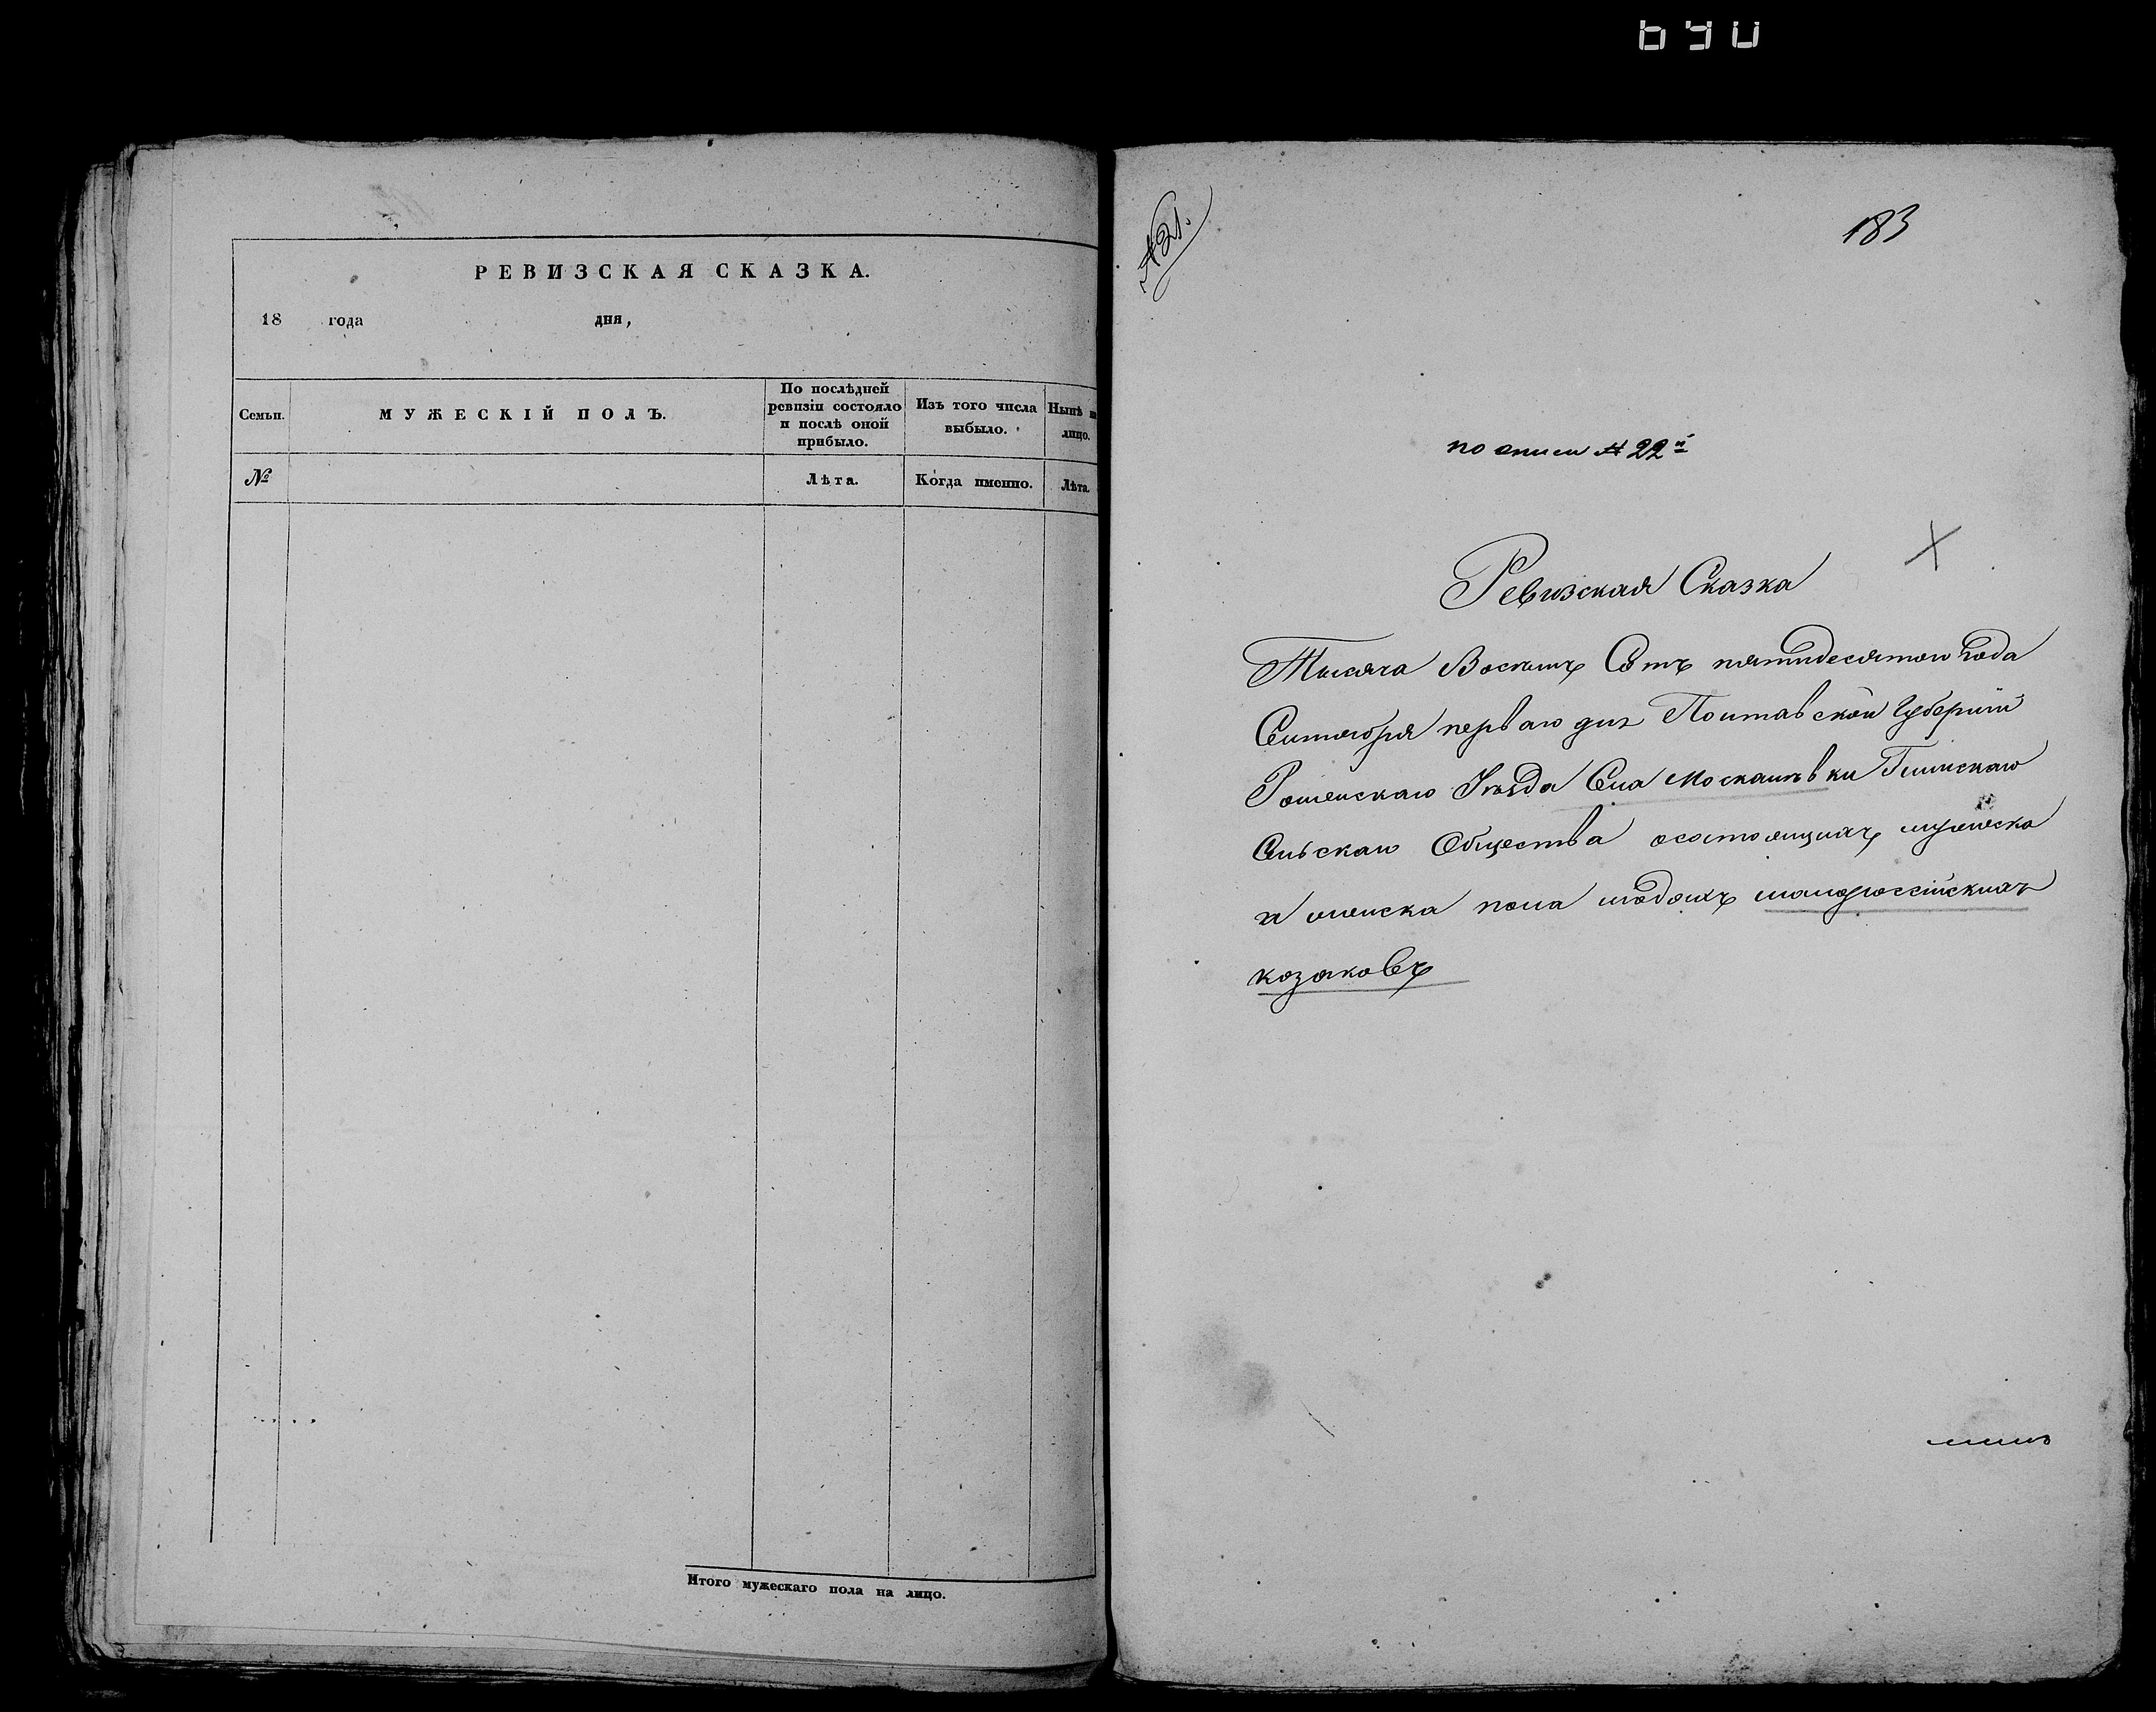 690
РЕВИЗСКАЯ СКАЗКА.
18 года дня,
Семьи.
МУЖЕСКІЙ ПОЛЪ.
По послѣдней
ревизіи состояло
и послѣ оной
прибыло.
Изъ того числа
выбыло.
Нынѣ на
лицо.
№
Лѣта.
Когда именно.
Лѣта.
Итого мужескаго пола на лицо.
№21.
183
по описи № 22й
Ревизская Сказка
Тысяча Восемь Сотъ пятидесятого года
Сентября перваго дня Полтавской Губерніи
Роменскаго Уѣзда Села Москалѣвки Глинскаго
Сельскаго Общества осостоящихъ мужеска
и женска пола людяхъ малороссійскихъ
козаковъ